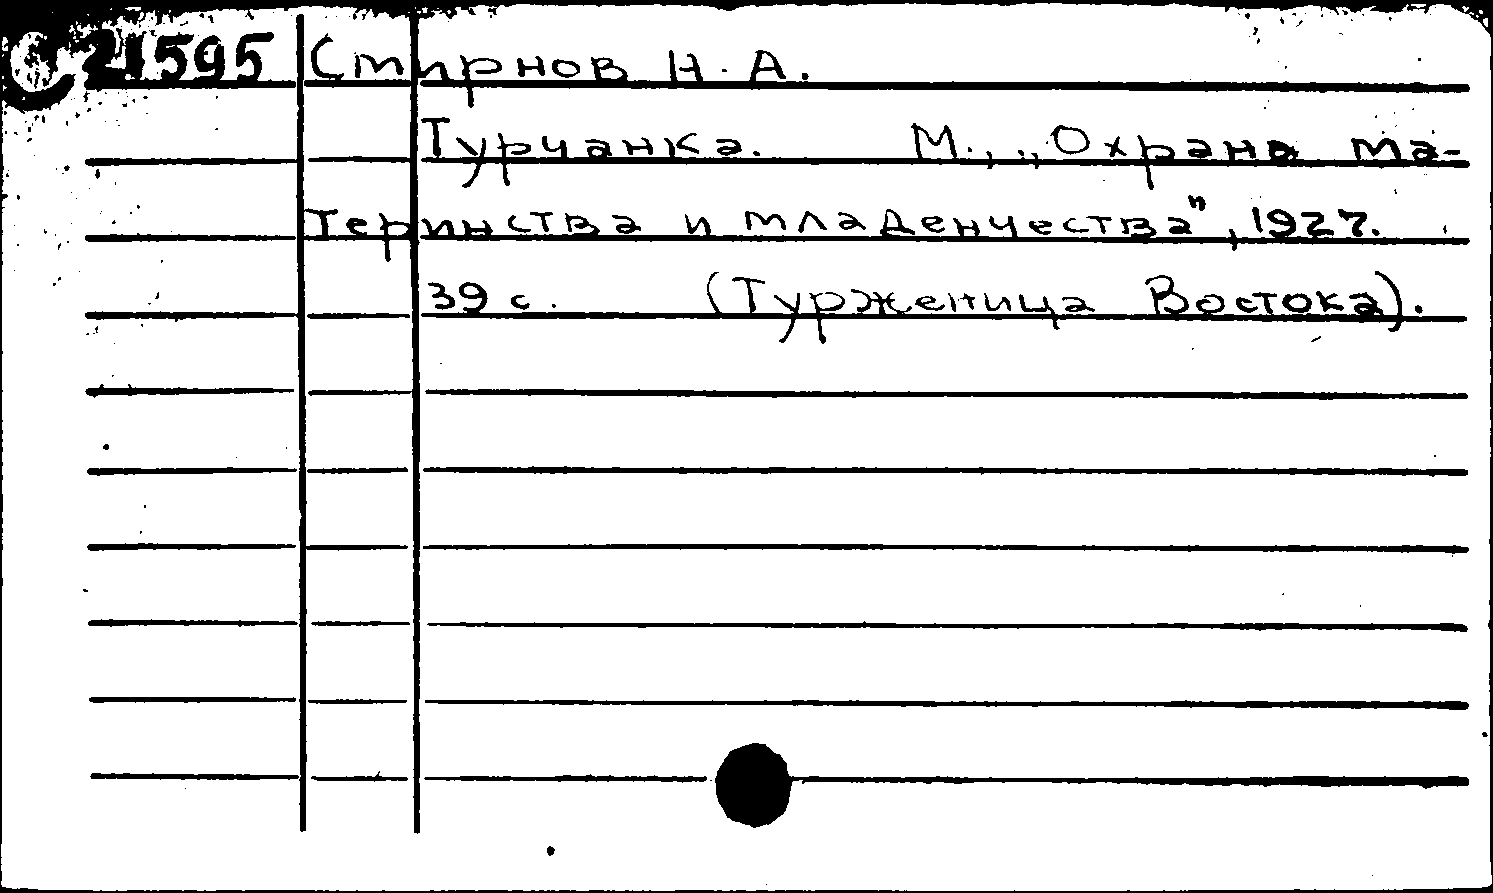 С 21595 Смирнов Н. А.
Турчанка. М., „Охрана ма-
теринства и младенчества", 1927.
39 с. (Турженица Востока).